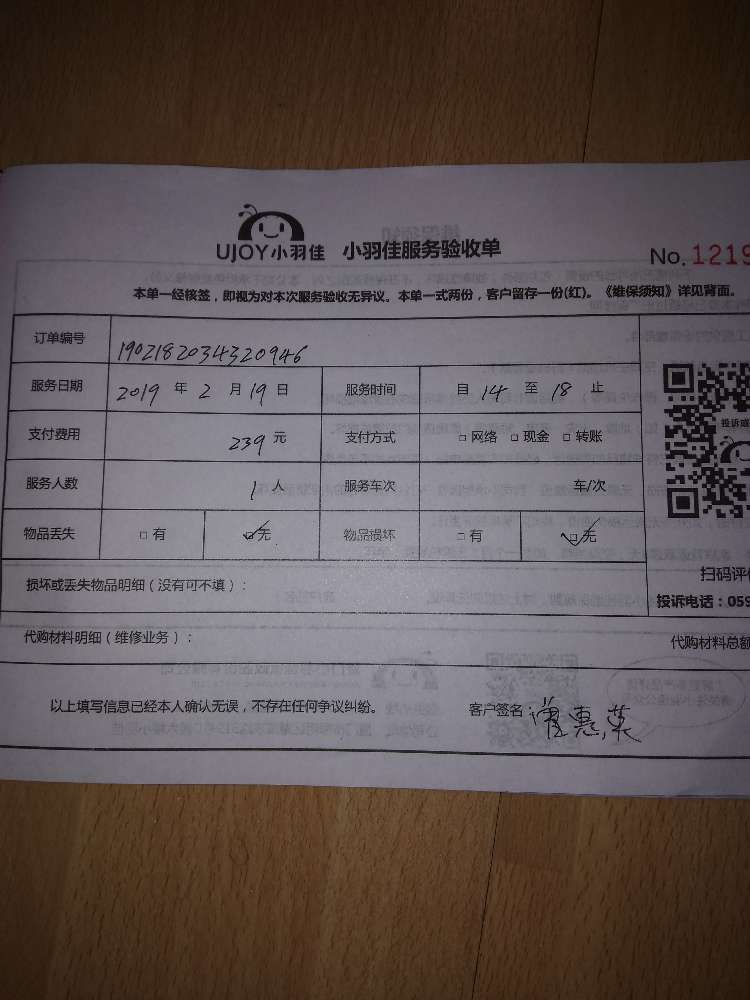 UJOY小羽佳 小羽佳服务验收单
No.1219
本单一经核签，即视为对本次服务验收无异议。本单一式两份，客户留存一份(红)。《维保须知》详见背面。
订单编号 1902182034320946
服务日期 2019 年 2 月 19 日 服务时间 自 14 至 18 止
支付费用 239 元 支付方式 □ 网络 □ 现金 □ 转账
服务人数 1 人 服务车次 车/次
物品丢失 □ 有 ☑无 物品损坏 □ 有 ☑无
投诉或
扫码评
损坏或丢失物品明细（没有可不填）：
投诉电话：059
代购材料明细（维修业务）： 代购材料总额
以上填写信息已经本人确认无误，不存在任何争议纠纷。 客户签名：